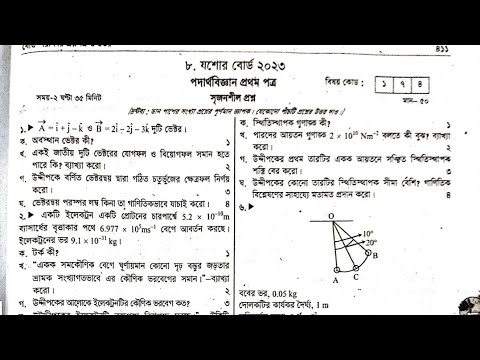 ৪১১
৮. যশোর বোর্ড ২০২৩
পদার্থবিজ্ঞান প্রথম পত্র
বিষয় কোড : ১ ৭ ৪
সময়-২ ঘণ্টা ৩৫ মিনিট
সৃজনশীল প্রশ্ন
মান– ৫০
[দ্রষ্টব্য : ডান পাশের সংখ্যা প্রশ্নের পূর্ণমান জ্ঞাপক। যেকোনো পাঁচটি প্রশ্নের উত্তর দাও।]
১.▶ A = i + j – k ও B = 2i – 2j – 3k দুটি ভেক্টর।
ক. অবস্থান ভেক্টর কী? ১
খ. একই জাতীয় দুটি ভেক্টরের যোগফল ও বিয়োগফল সমান হতে
পারে কি? ব্যাখ্যা করো। ২
গ. উদ্দীপকে বর্ণিত ভেক্টরদ্বয় দ্বারা গঠিত চতুর্ভুজের ক্ষেত্রফল নির্ণয়
করো। ৩
ঘ. ভেক্টরদ্বয় পরস্পর লম্ব কিনা তা গাণিতিকভাবে যাচাই করো। ৪
২.▶ একটি ইলেকট্রন একটি প্রোটনের চারপার্শ্বে 5.2 × 10⁻¹⁰m
ব্যাসার্ধের বৃত্তাকার পথে 6.977 × 10⁵ms⁻¹ বেগে আবর্তন করছে।
ইলেকট্রনের ভর 9.1 × 10⁻³¹ kg।
ক. টর্ক কী? ১
খ. “একক সমকৌণিক বেগে ঘূর্ণায়মান কোনো দৃঢ় বস্তুর জড়তার
ভ্রামক সংখ্যাগতভাবে এর কৌণিক ভরবেগের সমান।”–ব্যাখ্যা
করো। ২
গ. উদ্দীপকের আলোকে ইলেকট্রনটির কৌণিক ভরবেগ কত? ৩
ক. স্থিতিস্থাপক গুণাঙ্ক কী? ১
খ. পারদের আয়তন গুণাঙ্ক 2 × 10¹⁰ Nm⁻² বলতে কী বুঝ? ব্যাখ্যা
করো। ২
গ. উদ্দীপকের প্রথম তারটির একক আয়তনে সঞ্চিত স্থিতিস্থাপক
শক্তি বের করো। ৩
ঘ. উদ্দীপকের কোনো তারটির স্থিতিস্থাপক সীমা বেশি? গাণিতিক
বিশ্লেষণের সাহায্যে মতামত প্রদান করো। ৪
৬.▶
O
10°
20°
B
A C
ববের ভর, 0.05 kg
দোলকটির কার্যকর দৈর্ঘ্য, 1 m